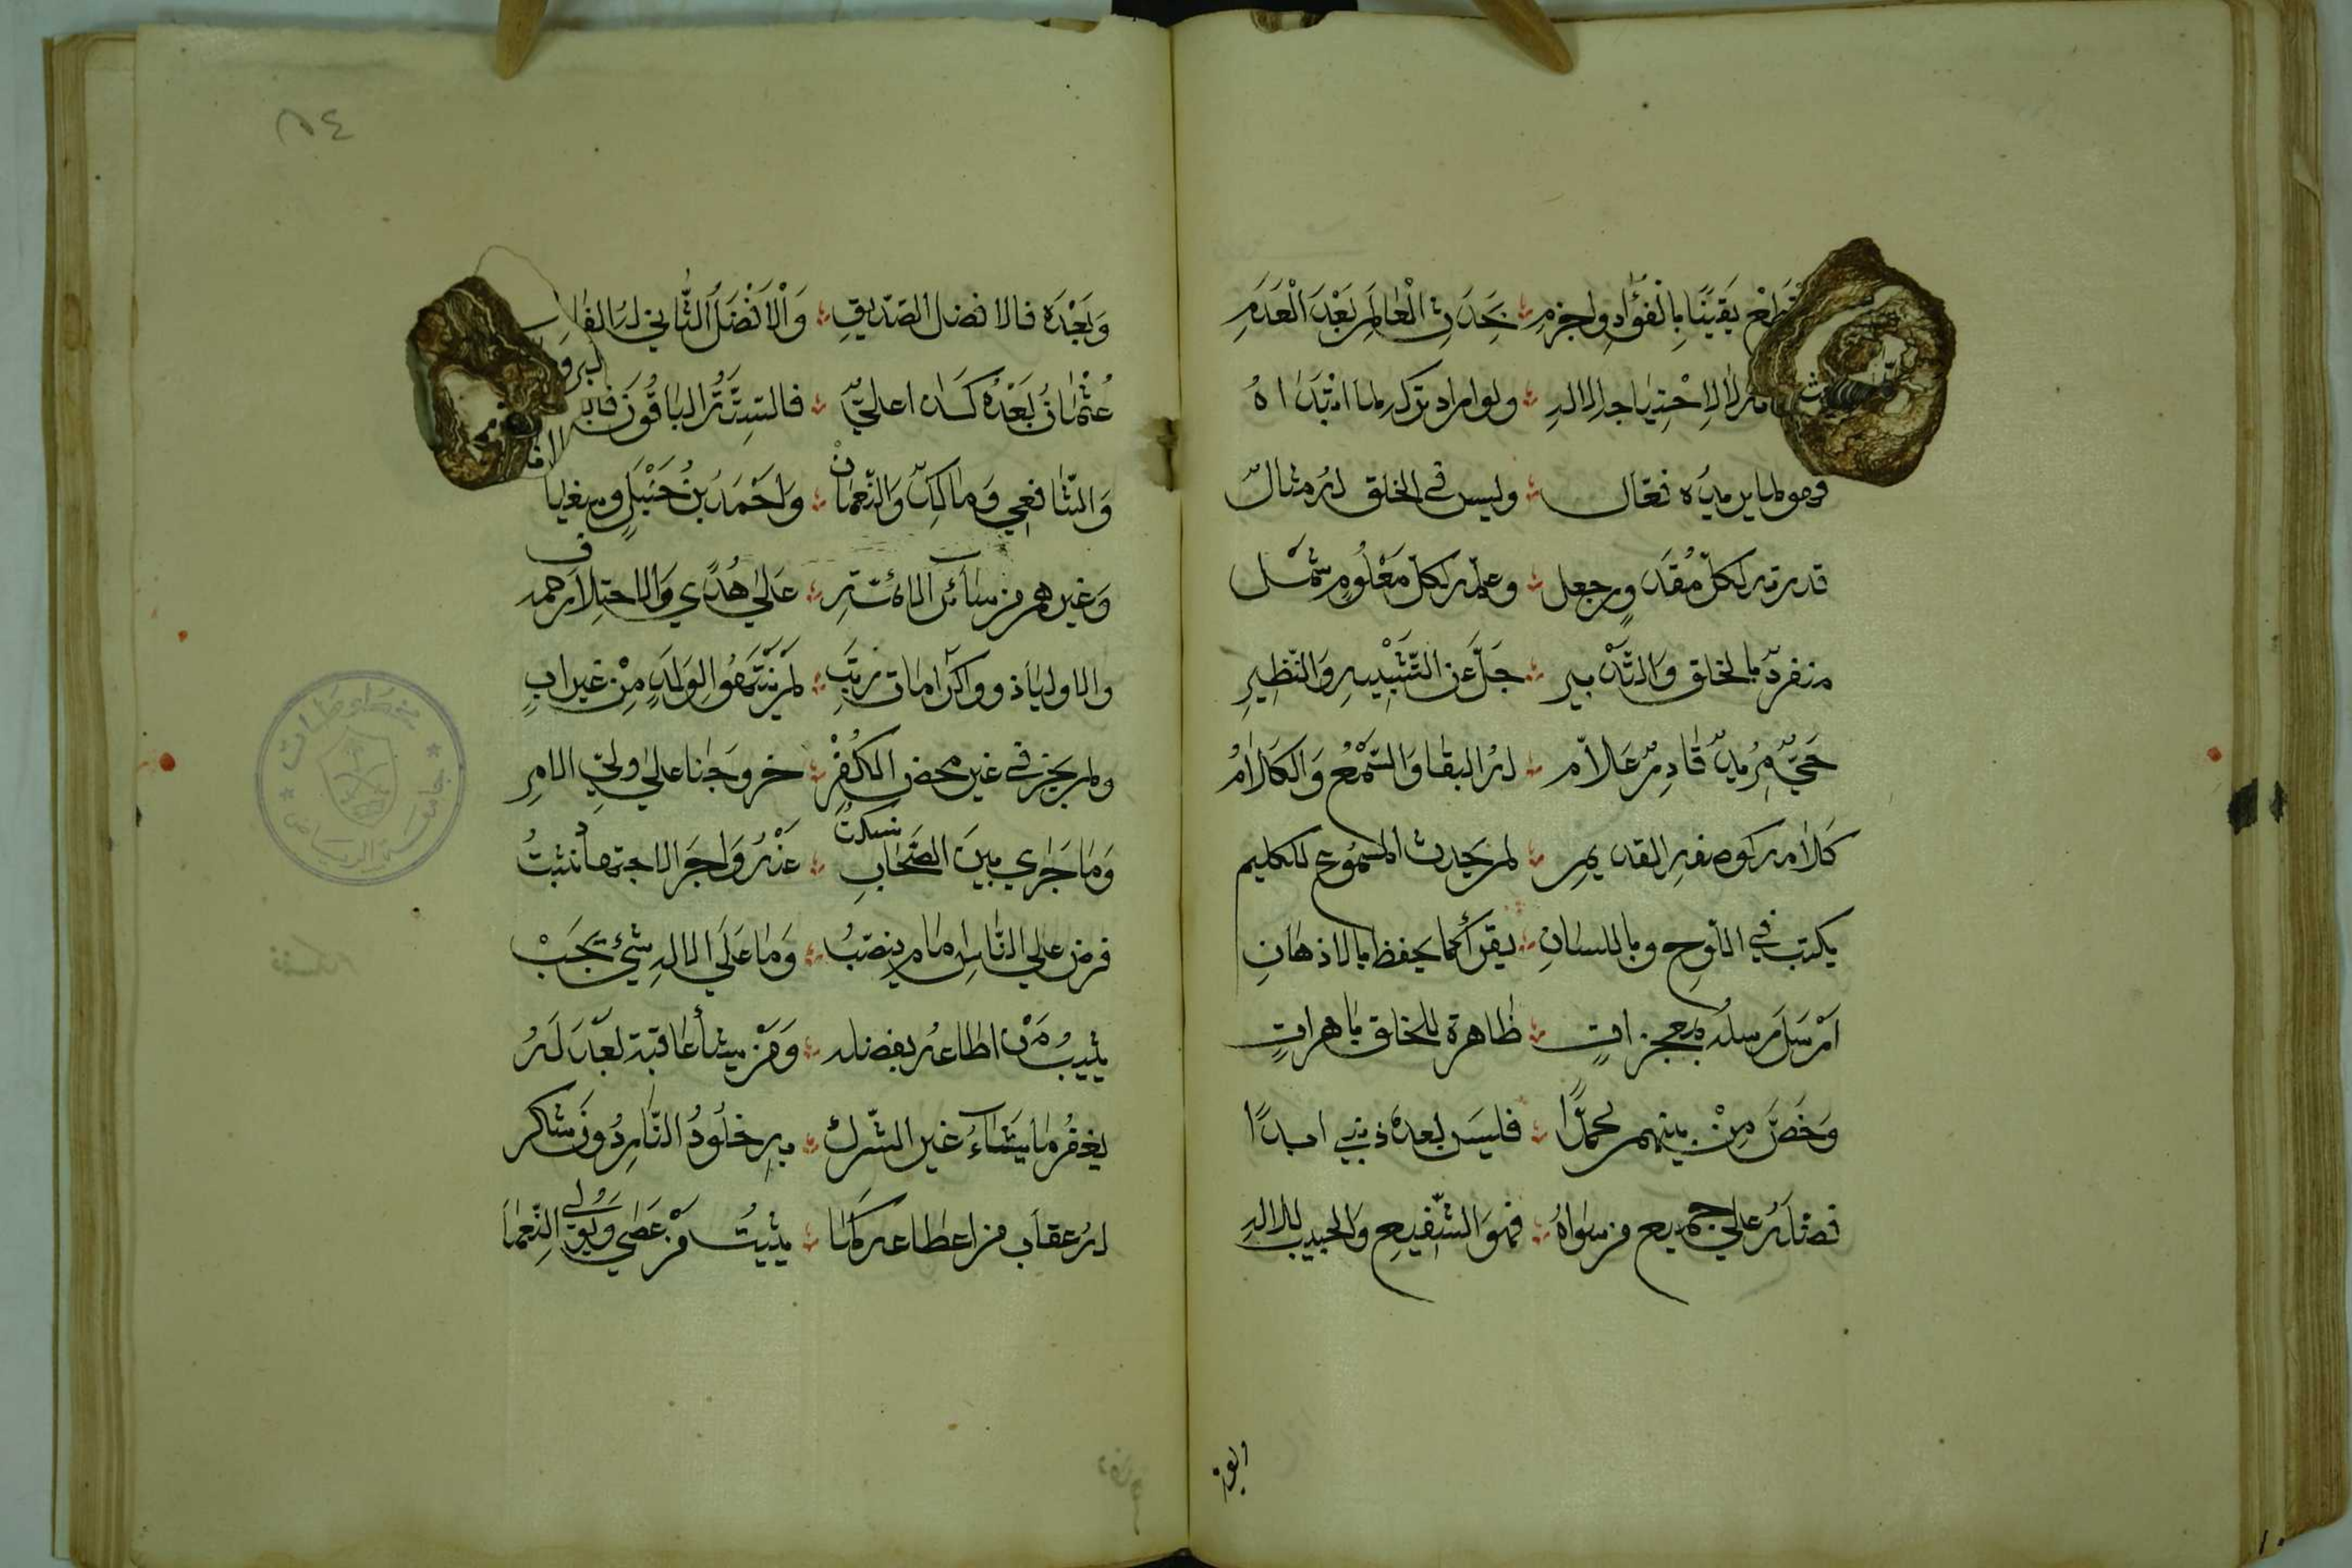 يقينا بالفؤاد واجزم بحدث العالم بعد العدم
لا لاحتياجه الاله ولو اراد تركه لما ابتداه
فهو لما يريده فعال وليس في الخلق له مثال
قدرته لكل مقدور جعل وعلمه لكل معلوم شمل
منفرد بالخلق والتدبير جل عن التشبيه والنظير
حي مريد قادر علام له البقا والسمع والكلام
كلامه كوصفه القديم لم يحدث المسموع للكليم
يكتب في اللوح وباللسان يقرأ كما يحفظ بالاذهان
ارسل رسله بمعجزات ظاهرة للخلق باهرات
وخص من بينهم محمدا فليس بعده نبي ابدا
فضله على جميع من سواه فهو الشفيع والحبيب للاله
وبعده
٥٤
وبعده فالافضل الصديق والافضل الثاني له الفاروق
عثمان بعده كذا علي فالستة الباقون
والشافعي ومالك والنعمان واحمد بن حنبل وسفيان
وغيرهم من سائر الائمة على هدى والاختلاف رحمة
والاوليا ذوو كرامات رتب لم ينتهوا لولد من غير اب
ولم يجز في غير محض الكفر خروجنا على ولي الامر
وما جرى بين الصحاب نسكت عنه واجر الاجتهاد نثبت
فرض على الناس امام ينصب وما على الاله شيء يجب
يثيب من اطاعه بفضله ومن يشأ عاقبه بعدله
يغفر ما يشاء غير الشرك به خلود النار دون شك
له عقاب من اطاعه كما يثيب من عصى ويولي النعما
مخطوطات
جامعة الرياض